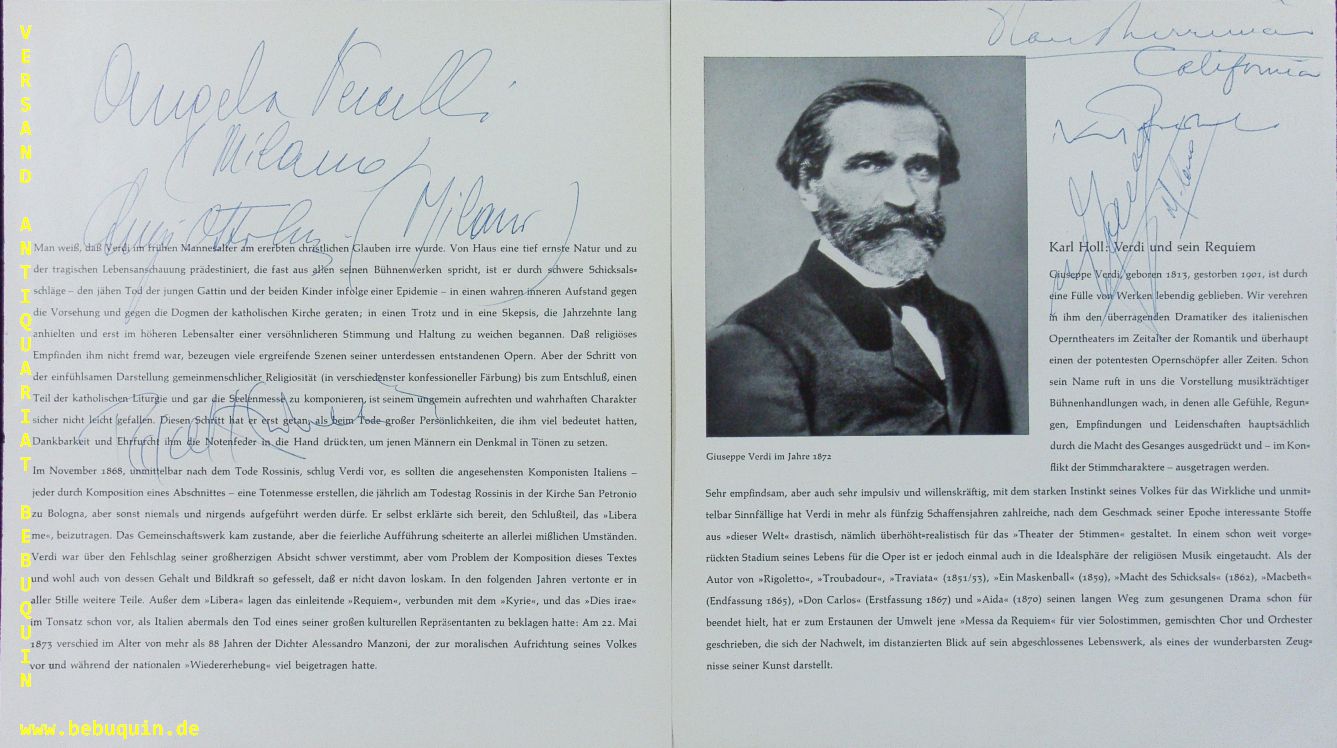 VERSAND ANTIQUARIAT BEBUQUIN
www.bebuquin.de
Angela Vercelli
(Milano)
(Milano)
Man weiß, daß Verdi im frühen Mannesalter am ererbten christlichen Glauben irre wurde. Von Haus eine tief ernste Natur und zu
der tragischen Lebensanschauung prädestiniert, die fast aus allen seinen Bühnenwerken spricht, ist er durch schwere Schicksals=
schläge – den jähen Tod der jungen Gattin und der beiden Kinder infolge einer Epidemie – in einen wahren inneren Aufstand gegen
die Vorsehung und gegen die Dogmen der katholischen Kirche geraten; in einen Trotz und in eine Skepsis, die Jahrzehnte lang
anhielten und erst im höheren Lebensalter einer versöhnlicheren Stimmung und Haltung zu weichen begannen. Daß religiöses
Empfinden ihm nicht fremd war, bezeugen viele ergreifende Szenen seiner unterdessen entstandenen Opern. Aber der Schritt von
der einfühlsamen Darstellung gemeinmenschlicher Religiosität (in verschiedenster konfessioneller Färbung) bis zum Entschluß, einen
Teil der katholischen Liturgie und gar die Seelenmesse zu komponieren, ist seinem ungemein aufrechten und wahrhaften Charakter
sicher nicht leicht gefallen. Diesen Schritt hat er erst getan, als beim Tode großer Persönlichkeiten, die ihm viel bedeutet hatten,
Dankbarkeit und Ehrfurcht ihm die Notenfeder in die Hand drückten, um jenen Männern ein Denkmal in Tönen zu setzen.
Im November 1868, unmittelbar nach dem Tode Rossinis, schlug Verdi vor, es sollten die angesehensten Komponisten Italiens –
jeder durch Komposition eines Abschnittes – eine Totenmesse erstellen, die jährlich am Todestag Rossinis in der Kirche San Petronio
zu Bologna, aber sonst niemals und nirgends aufgeführt werden dürfe. Er selbst erklärte sich bereit, den Schlußteil, das »Libera
me«, beizutragen. Das Gemeinschaftswerk kam zustande, aber die feierliche Aufführung scheiterte an allerlei mißlichen Umständen.
Verdi war über den Fehlschlag seiner großherzigen Absicht schwer verstimmt, aber vom Problem der Komposition dieses Textes
und wohl auch von dessen Gehalt und Bildkraft so gefesselt, daß er nicht davon loskam. In den folgenden Jahren vertonte er in
aller Stille weitere Teile. Außer dem »Libera« lagen das einleitende »Requiem«, verbunden mit dem »Kyrie«, und das »Dies irae«
im Tonsatz schon vor, als Italien abermals den Tod eines seiner großen kulturellen Repräsentanten zu beklagen hatte: Am 22. Mai
1873 verschied im Alter von mehr als 88 Jahren der Dichter Alessandro Manzoni, der zur moralischen Aufrichtung seines Volkes
vor und während der nationalen »Wiedererhebung« viel beigetragen hatte.
Nan Merriman
California
Milano
Giuseppe Verdi im Jahre 1872
Karl Holl: Verdi und sein Requiem
Giuseppe Verdi, geboren 1813, gestorben 1901, ist durch
eine Fülle von Werken lebendig geblieben. Wir verehren
in ihm den überragenden Dramatiker des italienischen
Operntheaters im Zeitalter der Romantik und überhaupt
einen der potentesten Opernschöpfer aller Zeiten. Schon
sein Name ruft in uns die Vorstellung musikträchtiger
Bühnenhandlungen wach, in denen alle Gefühle, Regun=
gen, Empfindungen und Leidenschaften hauptsächlich
durch die Macht des Gesanges ausgedrückt und – im Kon=
flikt der Stimmcharaktere – ausgetragen werden.
Sehr empfindsam, aber auch sehr impulsiv und willenskräftig, mit dem starken Instinkt seines Volkes für das Wirkliche und unmit=
telbar Sinnfällige hat Verdi in mehr als fünfzig Schaffensjahren zahlreiche, nach dem Geschmack seiner Epoche interessante Stoffe
aus »dieser Welt« drastisch, nämlich überhöht=realistisch für das »Theater der Stimmen« gestaltet. In einem schon weit vorge=
rückten Stadium seines Lebens für die Oper ist er jedoch einmal auch in die Idealsphäre der religiösen Musik eingetaucht. Als der
Autor von »Rigoletto«, »Troubadour«, »Traviata« (1851/53), »Ein Maskenball« (1859), »Macht des Schicksals« (1862), »Macbeth«
(Endfassung 1865), »Don Carlos« (Erstfassung 1867) und »Aida« (1870) seinen langen Weg zum gesungenen Drama schon für
beendet hielt, hat er zum Erstaunen der Umwelt jene »Messa da Requiem« für vier Solostimmen, gemischten Chor und Orchester
geschrieben, die sich der Nachwelt, im distanzierten Blick auf sein abgeschlossenes Lebenswerk, als eines der wunderbarsten Zeug=
nisse seiner Kunst darstellt.